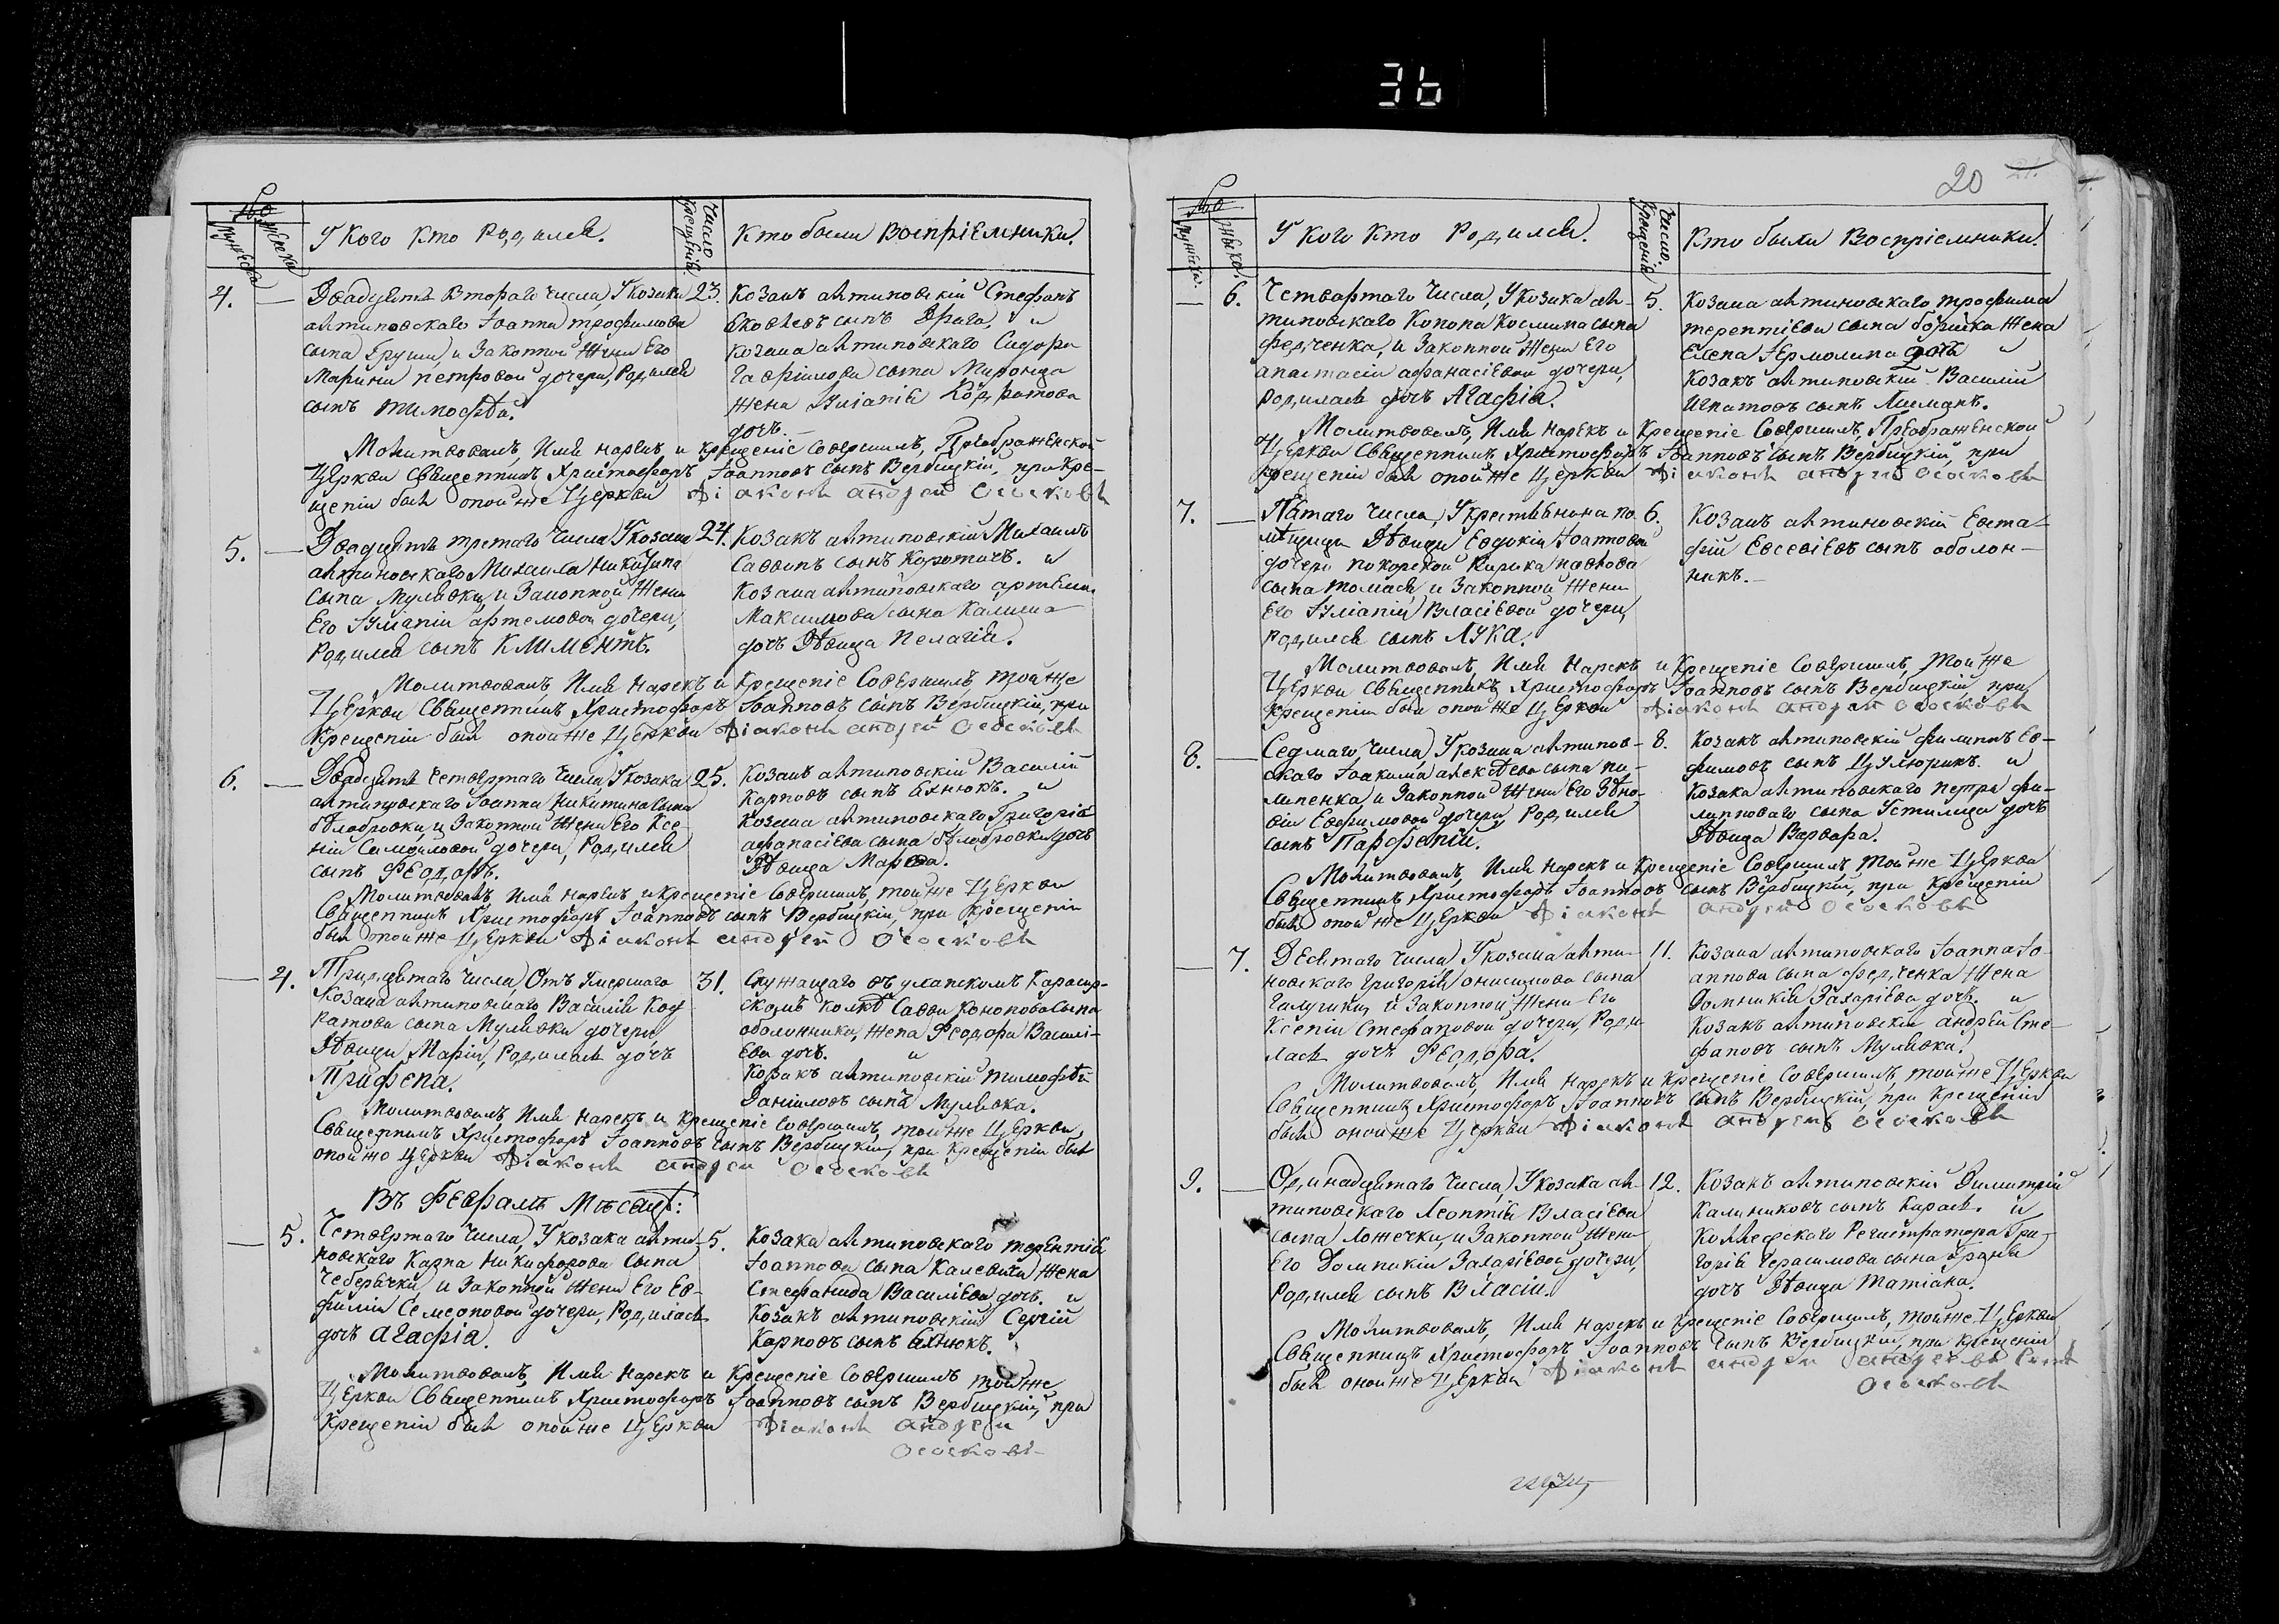 36
№
мужеска
женска
У Кого Кто Родился.
Число крещенія
Кто были Воспріемники.
4.
Двадцять Втораго Числа, У Козака
антиповскаго Іоанна трофимова
сына Груши, и Законной Жени Его
Марини петровой дочери, Родился
сынъ тимофѣй.
23.
Козакъ антиповскій Стефанъ
Яковлевъ сынъ Драга, и
Козака антиповскаго Сидора
Гавріилова сына Миронца
Жена Іуліанія Кодратова
дочъ.
Молитвовалъ, Имя нарекъ и крещеніе Совершилъ, Преображенской
Церкви Священникъ Христофоръ Іоанновъ сынъ Вербицкій, при Кре-
щеніи былъ оной же Церкви Діаконъ андрей Ососковъ
5.
Двадцять третаго Числа У Козака
антиповскаго Михаила Никитина
сына Мулявки, и Законной Жени
Его Іуліаніи артемовой дочери,
Родился сынъ Климентъ.
24.
Козакъ антиповскій Михаилъ
Саввинъ сынъ Коротичъ. и
Козака антиповскаго артема
Максимова сына Калиша
дочъ Дѣвица Пелагія.
Молитвовалъ, Имя Нарекъ и Крещеніе Совершилъ, той же
Церкви Священникъ Христофоръ Іоанновъ сынъ Вербицкій, при
Крещеніи былъ оной же Церкви Діаконъ андрей Ососковъ
6.
Двадцять Четвертаго Числа, У Козака
антиповскаго Іоанна Никитина сына
бѣлобровки, и Законной Жени Его Ксе
ніи Самойловой дочери, Родился
сынъ Феодоръ.
25.
Козакъ антиповскій Василій
Карповъ сынъ бхнюкъ. и
Козака антиповскаго Григорія
афанасіева сына бѣлобровки дочъ
Дѣвица Марфа.
Молитвовалъ, Имя нарекъ и Крещеніе Совершилъ, той же Церкви
Священникъ Христофоръ Іоанновъ сынъ Вербицкій, при Крещеніи
былъ той же Церкви Діаконъ андрей Ососковъ
4.
Тридцятаго Числа, Отъ Умершаго
Козака антиповскаго Василія Код
ратова сына Мулявки дочери,
Дѣвици Маріи, Родилась дочъ
Трифена.
31.
Служащаго въ уланскомъ
скомъ полкѣ Савви Кононова сына
оболонника, Жена Феодора Василі-
Ева дочъ. и
Козакъ антиповскій тимофѣй
Даніиловъ сынъ Мулявка.
Молитвовалъ, Имя Нарекъ и Крещеніе Совершилъ, той же Церкви
Священникъ Христофоръ Іоанновъ сынъ Вербицкій, при Крещеніи былъ
оной же Церкви Діаконъ андрей Ососковъ
Въ Февралѣ Мѣсацѣ:
5.
Четвертаго Числа, У Козака анти-
повскаго Карпа Никифорова сына
Чеберячки, и Законной Жени Его Ев-
фиміи Семеоновой дочери, Родилась
дочъ Агафія.
5.
Козака антиповскаго терентія
Іоаннова сына Калевича Жена
Стефанида Василіева дочъ. и
Козакъ антиповскій Сергій
Карповъ сынъ бхнюкъ.
Молитвовалъ, Имя Нарекъ и Крещеніе Совершилъ той же
Церкви Священникъ Христофоръ Іоанновъ сынъ Вербицкій, при
Крещеніи былъ оной же Церкви Діаконъ андрей
Ососковъ
20 21.
№
мужска.
женска.
У Кого Кто Родился.
Число. Крещенія
Кто были Воспріемники.
6.
Четвартаго Числа, У Козака ан-
типовскаго Конона Космина сына
федченка, и Законной Жени Его
анастасіи афанасіевой дочери,
родилась дочъ Агафія.
5.
Козака антиповскаго трофима
терентіева сына борийка Жена
Елена Ермолина дочъ и
Козакъ антиповскій Василій
Игнатовъ сынъ Лиманъ.
Молитвовалъ, Имя Нарекъ и Крещеніе Совершилъ, Преображенской
Церкви Священникъ Христофоръ Іоанновъ сынъ Вербицкій, при
Крещеніи былъ оной же Церкви Діаконъ андрей Ососковъ
7.
Пятаго Числа, У Крестянина по
мѣщици Дѣвици Евдокіи Іоанновой
дочери покорской Кирика павлова
сына томася, и Законной Жени
Его Іуліаніи Власіевой дочери,
Родился сынъ Лука.
6.
Козакъ антиповскій Евста-
фій Евсевіевъ сынъ оболон-
никъ.
Молитвовалъ, Имя Нарекъ и Крещеніе Совершилъ, той же
Церкви Священникъ Христофоръ Іоанновъ сынъ Вербицкій, при
Крещеніи былъ оной же Церкви Діаконъ андрей Ососковъ
8.
Седмаго Числа, У Козака антипов-
скаго Іоакима алексѣева сына пи-
липенка, и Законной Жени Его Зѣно-
віи Евфимовой дочери, Родился
сынъ Парфеній.
8.
Козакъ антиповскій филиппъ Ев-
фимовъ сынъ Цулюрикъ. и
Козака антиповскаго петра фи-
липповаго сына Устилица дочъ
Дѣвица Варвара.
Молитвовалъ, Имя Нарекъ и Крещеніе Совершилъ той же Церкви
Священникъ Христофоръ Іоанновъ сынъ Вербицкій, при Крещеніи
былъ оной же Церкви Діаконъ андрей Ососковъ
7.
Десятаго Числа У Козака анти-
повскаго Григорія онисимова сына
Галушки, и Законной Жени Его
Ксеніи Стефановой дочери, Роди
лась дочъ Феодора.
11.
Козака антиповскаго Іоанна Іо-
аннова сына федченка Жена
Домникія Захаріева дочъ. и
Козакъ антиповскій андрей Сте-
фановъ сынъ Мулявка.
Молитвовалъ, Имя Нарекъ и Крещеніе Совершилъ, той же Церкви
Священникъ Христофоръ Іоанновъ сынъ Вербицкій, при Крещеніи
былъ оной же Церкви Діаконъ андрей Ососковъ
9.
Одинадцятаго Числа, У Козака ан-
типовскаго Леонтія Власіева
сына ложечки, и Законной Жени
Его Домникіи Захаріевой дочери,
Родился сынъ Власій.
12.
Козакъ антиповскій Димитрій
Калиниковъ сынъ Карась. и
Коллежскаго Регистратора Гри-
горія Герасимова сына
дочъ Дѣвица татіана.
Молитвовалъ, Имя Нарекъ и Крещеніе Совершилъ, той же Церкви
Священникъ Христофоръ Іоанновъ сынъ Вербицкій, при Крещеніи
былъ оной же Церкви Діаконъ андрей андреевъ Синъ
Ососковъ